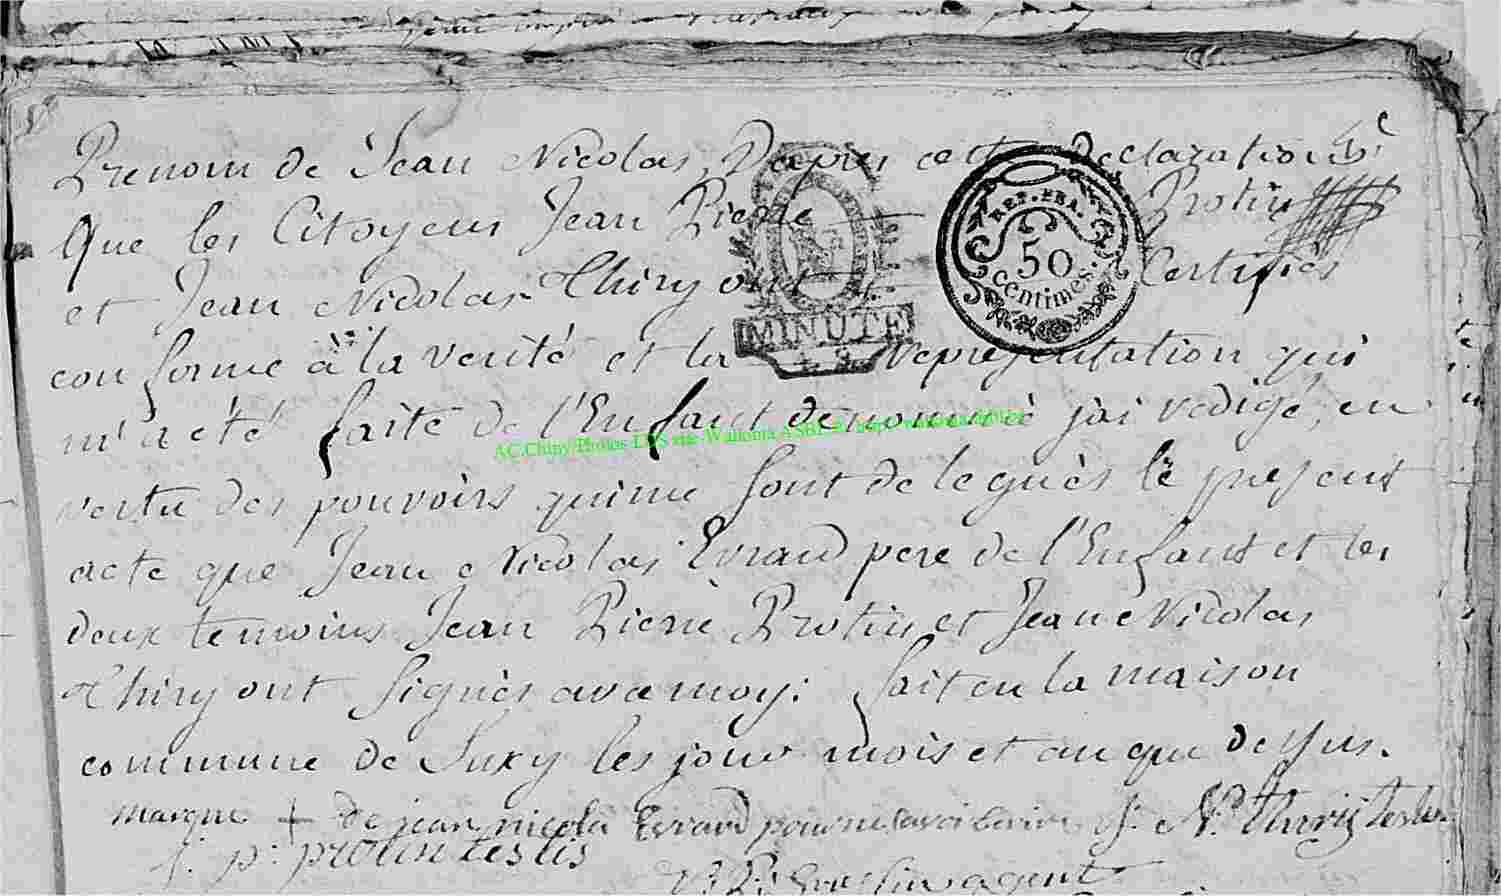 Prenom de Jean Nicolas, Dapres cette declaration
Que les Citoyens Jean Pierre Protin
et Jean Nicolas Thiry ont Certifiés
REP. FRA.
50
centimes.
MINUTE
conforme à la verité et la representation qui
m'a été faite de l'Enfant denommé j'ai redigé, en
AC.Chiny Photos
vertu des pouvoirs qui me sont delegués le present
acte que Jean Nicolas Evrard pere de l'Enfant et les
deux temoins Jean Pierre Protin et Jean Nicolas
Thiry ont signés avec moy: fait en la maison
commune de Suxy les jour mois et an que dessus.
marque + de jean nicola Evrard pour ne savoir J: N: thiry
j: p: protin testis
agent